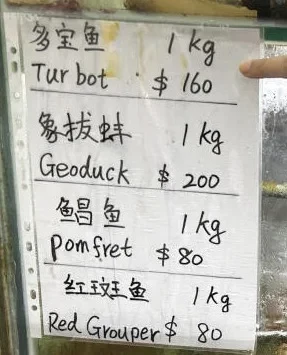 多宝鱼 1 kg
Turbot $ 160
象拔蚌 1 kg
Geoduck $ 200
鲳鱼 1 kg
pomfret $ 80
红斑鱼 1 kg
Red Grouper $ 80